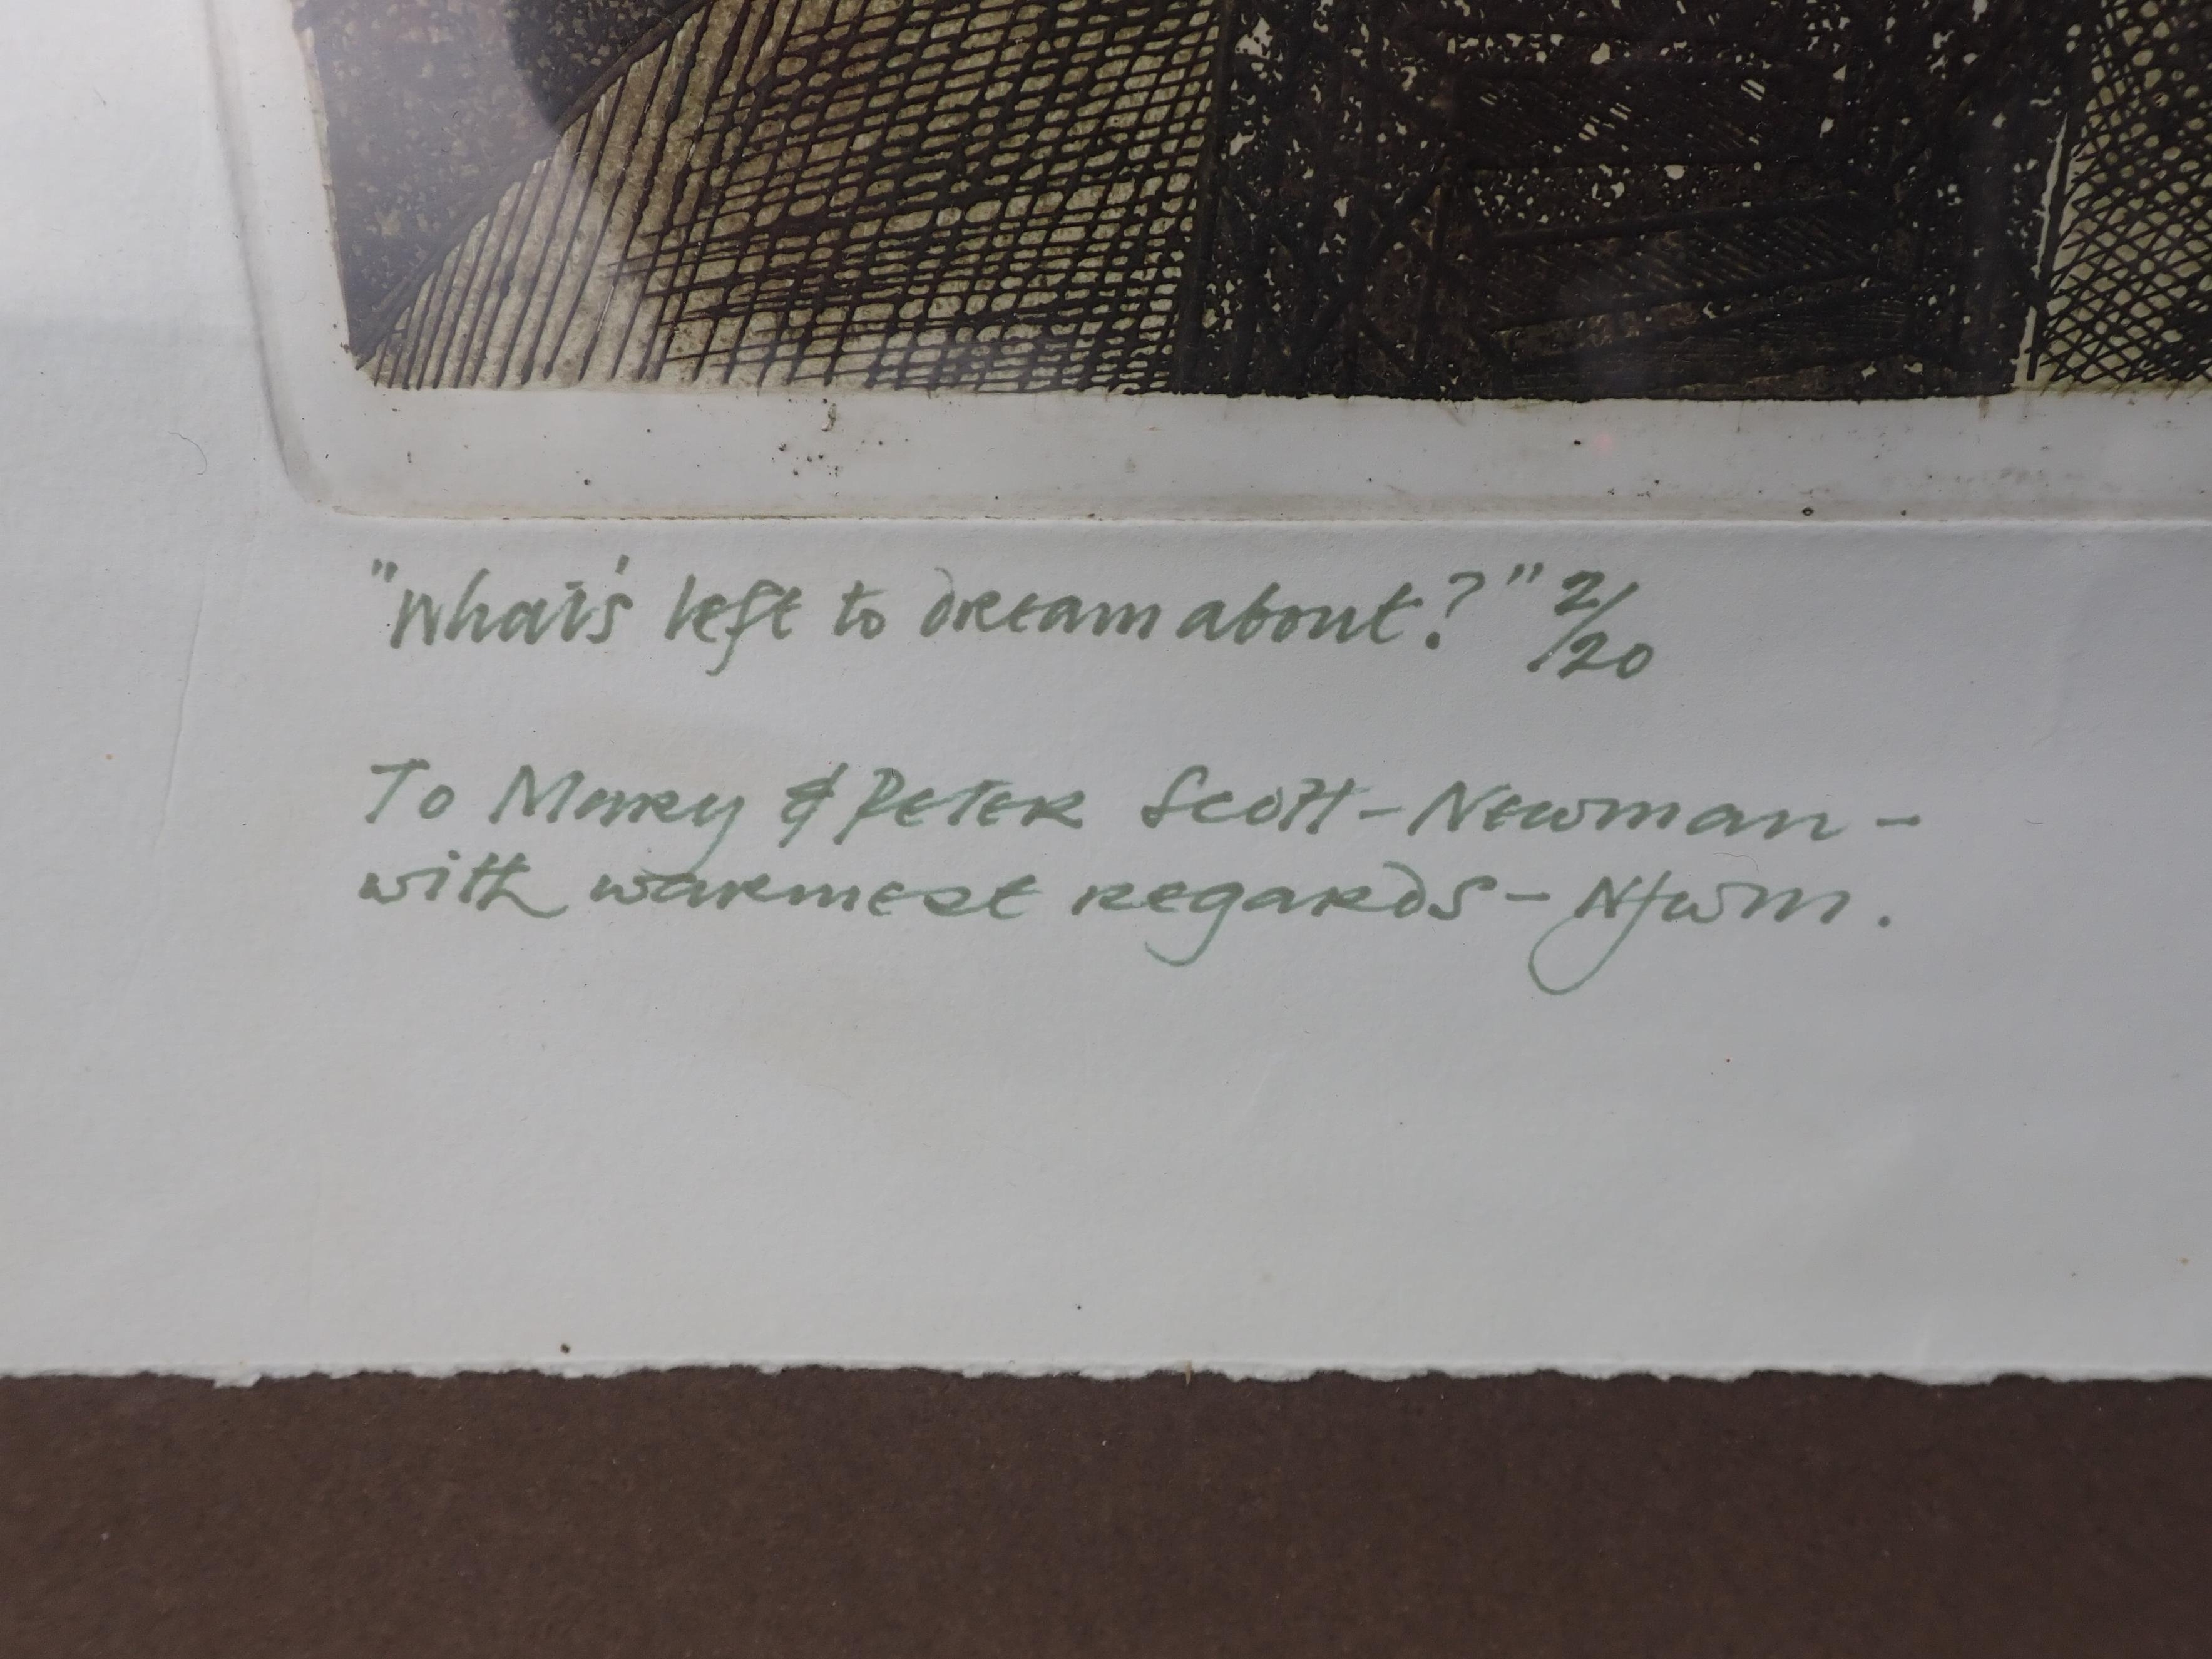 "What's left to dream about?" 2/20
To Mary & Peter Scott-Newman -
with warmest regards -